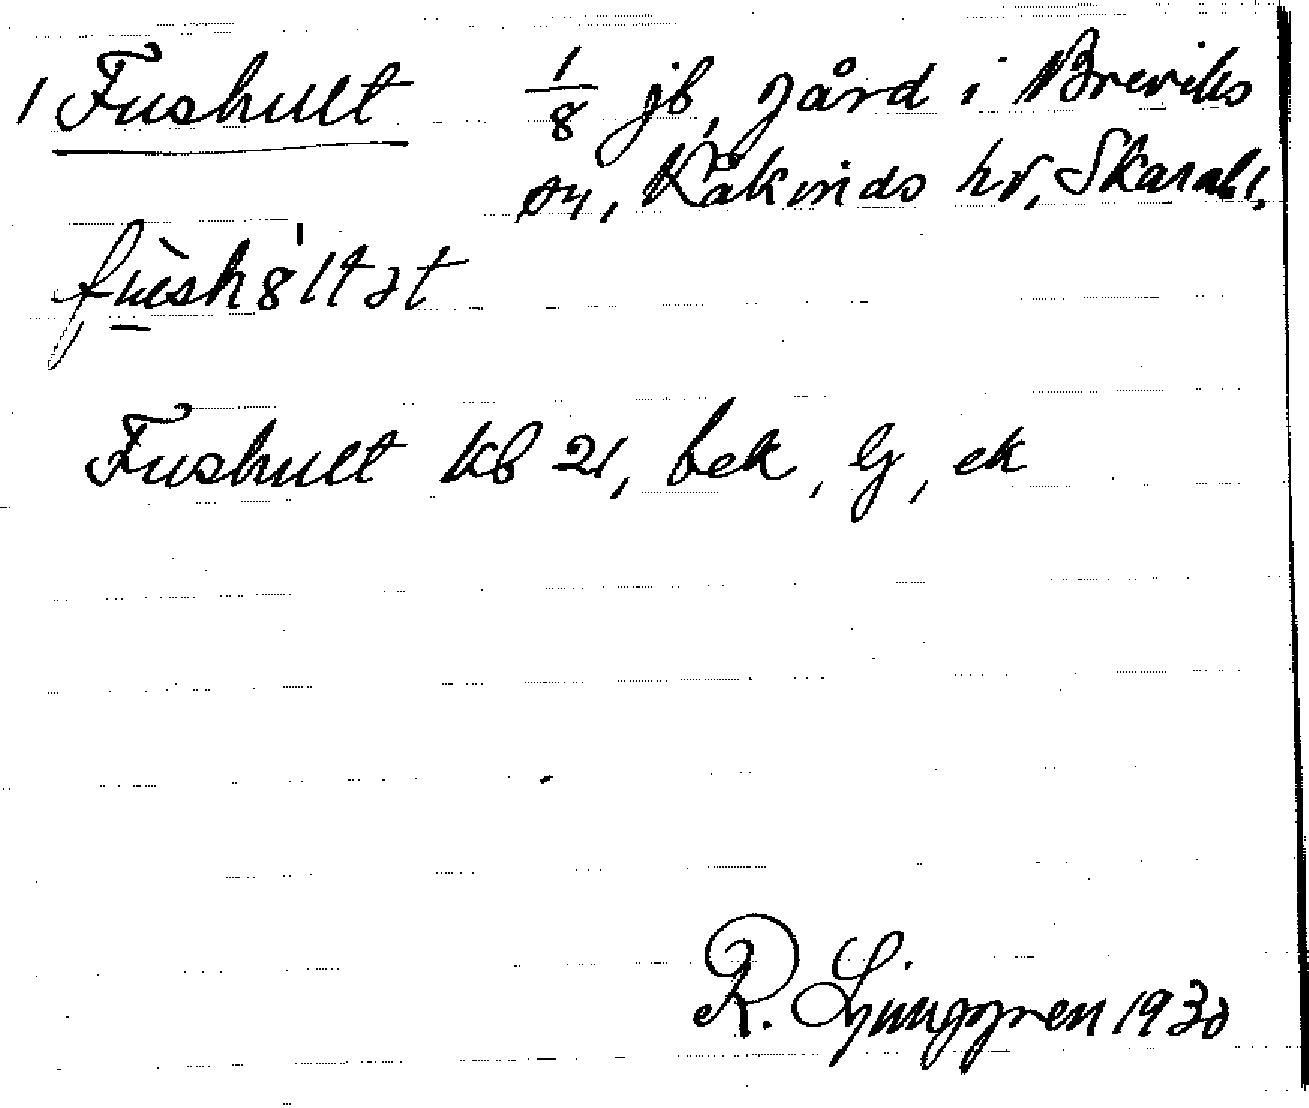 1 Fushult 1/8 jb, gård i Breviks
sn, Kåkinds hr, Skarabl.
fùsh8̍ltət
Fushult kb 21, bek, G, ek
R. Ljunggren 1930